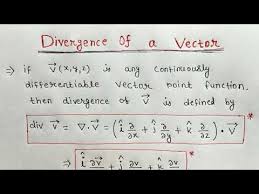 Divergence Of a Vector
⇒ if V⃗(x,y,z) is any continuously
differentiable vector point function.
then divergence of V⃗ is defined by
div V⃗ = ∇ · V⃗ = (î ∂/∂x + ĵ ∂/∂y + k̂ ∂/∂z) · V⃗ *
⇒ î ∂v⃗ + ĵ ∂v + k̂ ∂v *